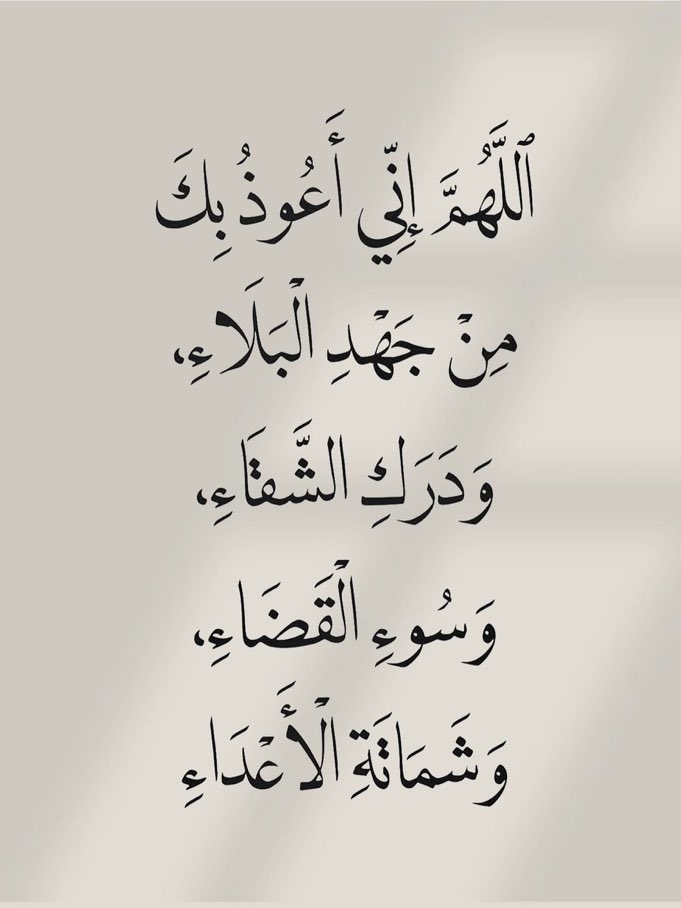 ٱللَّهُمَّ إِنِّي أَعُوذُ بِكَ
مِنْ جَهْدِ الْبَلَاءِ،
وَدَرَكِ الشَّقَاءِ،
وَسُوءِ الْقَضَاءِ،
وَشَمَاتَةِ الْأَعْدَاءِ